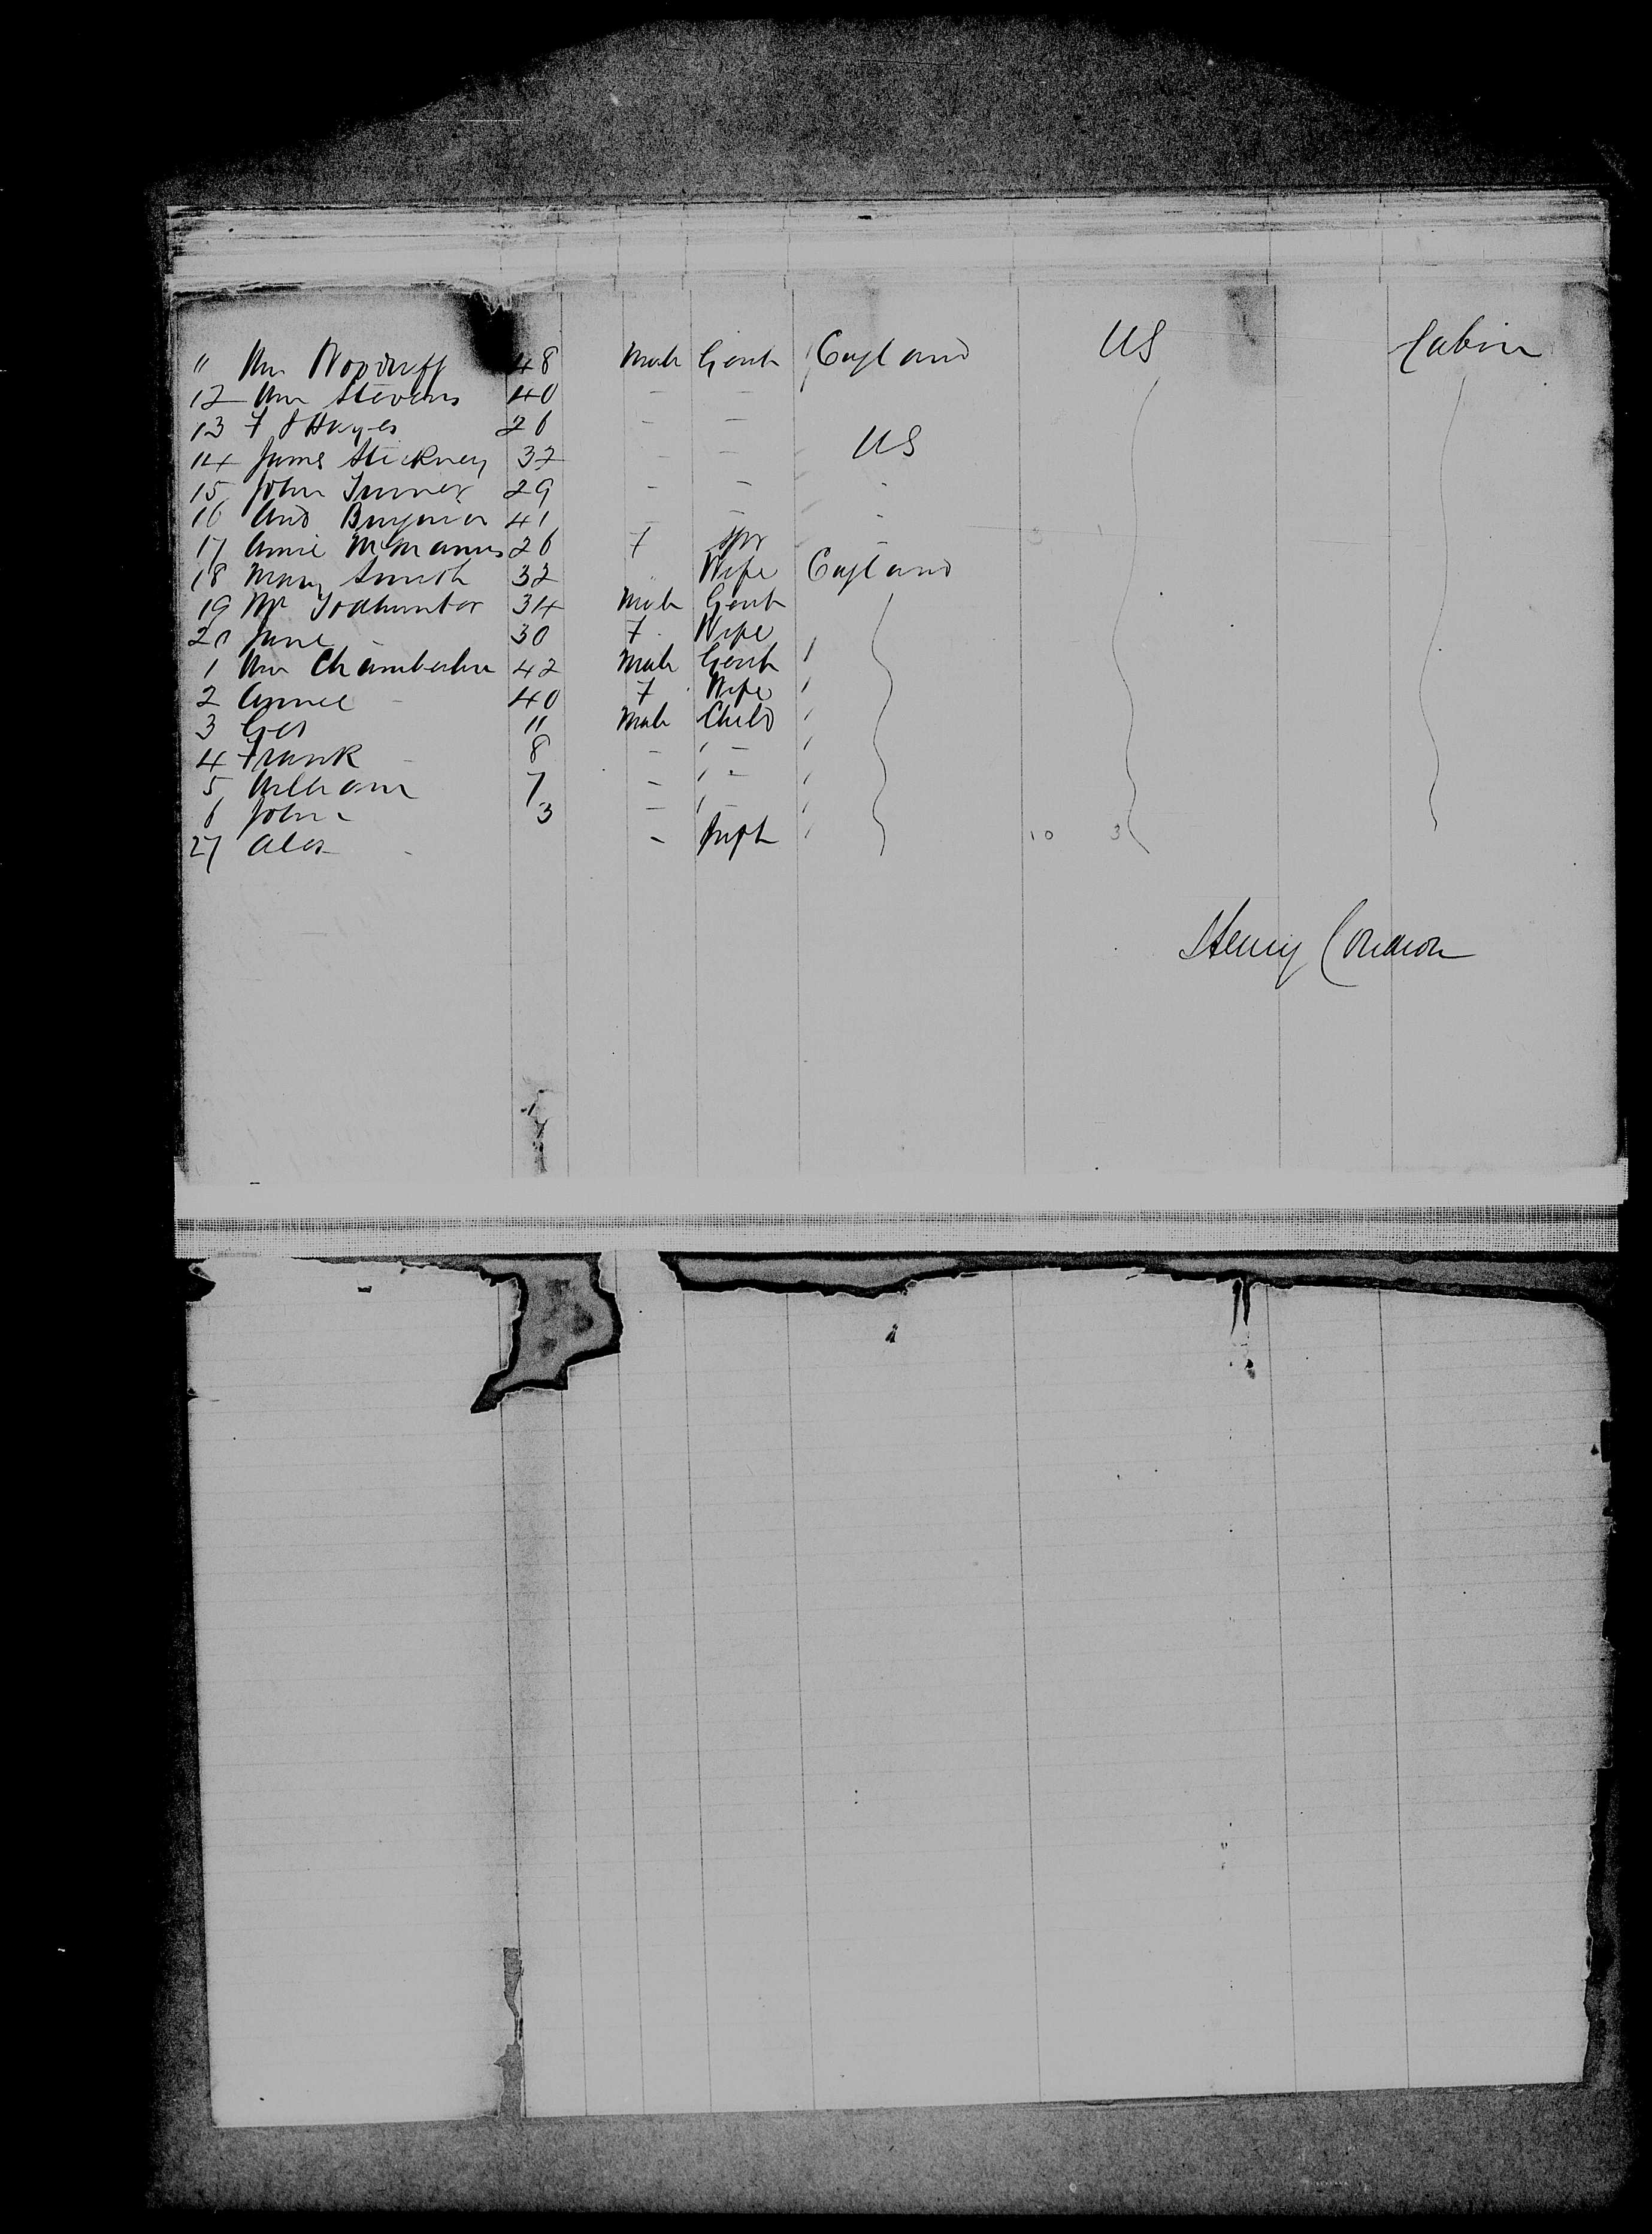 11 Wm Woodruff 48 Male Gent England US Cabin
12 Wm Stevens 40 - -
13 F J Hayes 26 - -
14 James Stickney 32 - - US
15 John Turner 29 - - -
16 And 41 - - -
17 Annie McManus 26 F Spr
18 Mary Smith 32 Wife England
19 Wm Todhunter 34 Male Gent
20 Jane - 30 F Wife
1 Wm Chamberlin 42 Male Gent
2 Annie - 40 F Wife
3 Geo 11 Male Child
4 Frank - 8 - -
5 William 7 - -
6 John - 3 - -
27 Alex - - Inft 10 3
Henry